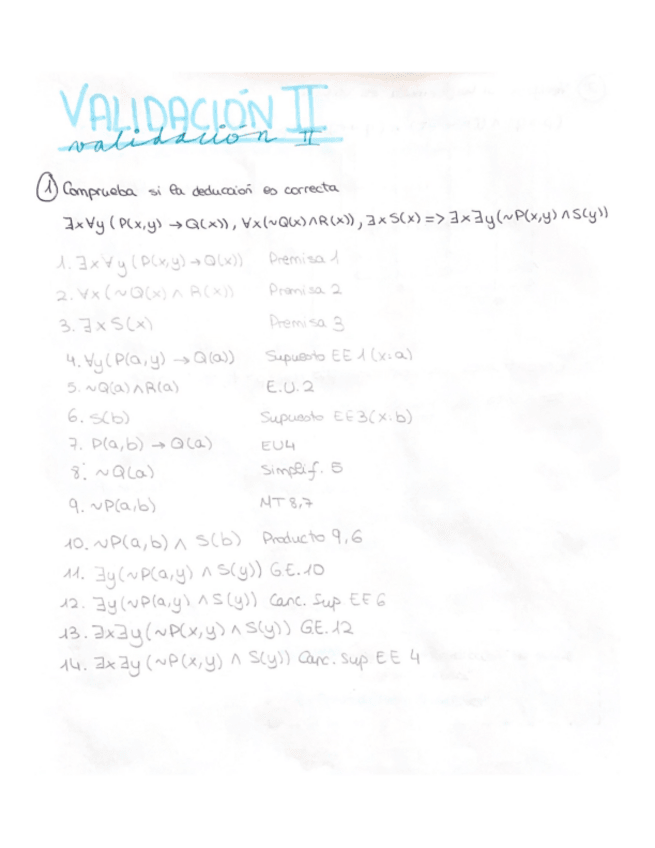 VALIDACIÓN II
validación II
1 Comprueba si la deducción es correcta
∃x∀y (P(x,y) → Q(x)), ∀x(~Q(x)∧R(x)), ∃xS(x) => ∃x∃y(~P(x,y)∧S(y))
1. ∃x∀y(P(x,y)→Q(x)) Premisa 1
2. ∀x(~Q(x)∧R(x)) Premisa 2
3. ∃xS(x) Premisa 3
4. ∀y(P(a,y)→Q(a)) Supuesto EE1(x:a)
5. ~Q(a)∧R(a) E.U.2
6. S(b) Supuesto EE3(x:b)
7. P(a,b) → Q(a) EU4
8. ~Q(a) Simplif. 5
9. ~P(a,b) MT 8,7
10. ~P(a,b) ∧ S(b) Producto 9,6
11. ∃y(~P(a,y) ∧ S(y)) G.E.10
12. ∃y(~P(a,y) ∧ S(y)) Canc. Sup EE6
13. ∃x∃y(~P(x,y) ∧ S(y)) G.E.12
14. ∃x∃y(~P(x,y) ∧ S(y)) Canc. Sup EE 4